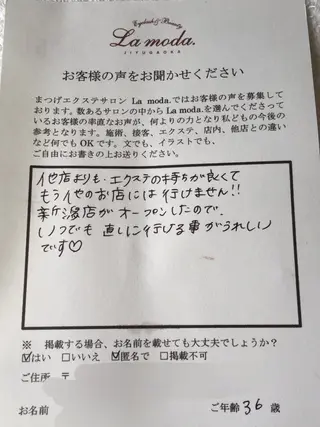 Eyelash & Beauty
La moda.
JIYUGAOKA
お客様の声をお聞かせください
まつげエクステサロン La moda.ではお客様の声を募集して
おります。数あるサロンの中から La moda.を選んでくださってい
るお客様の率直なお声が、何よりの力となり私どもの今後の
参考となります。施術、接客、エクステ、店内、他店との違い
など何でも OK です。文でも、イラストでも、
ご自由にお書きの上お送りください。
他店よりも、エクステの持ちが良くて
もう他のお店には行けません!!
新店がオープンしたので、
いつでも直しに行ける事がうれしい
です♡
※ 掲載する場合、お名前を載せても大丈夫でしょうか?
☑はい □いいえ ☑匿名で □掲載不可
ご住所 〒
お名前 ご年齢 36 歳